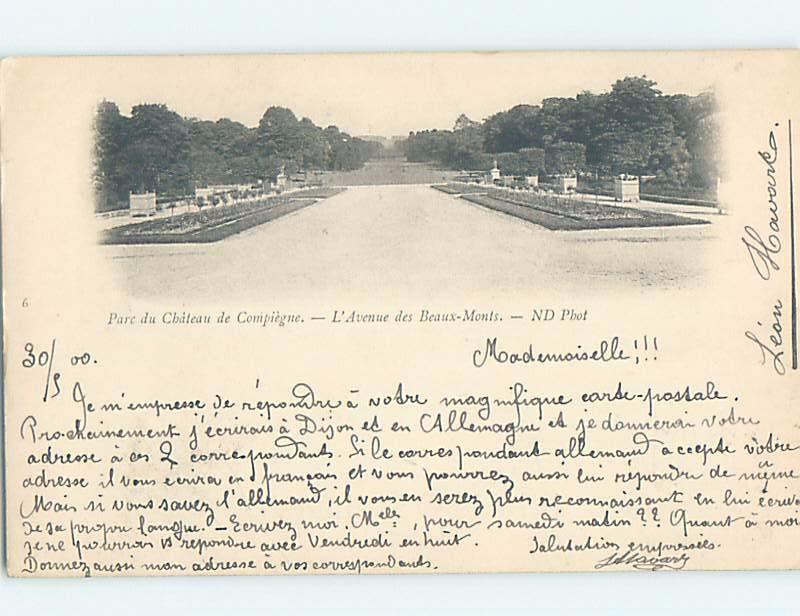 6
Parc du Château de Compiègne. — L'Avenue des Beaux-Monts. — ND Phot
Léon Havard.
30/5 00.
Mademoiselle!!!
Je m'empresse de répondre à votre magnifique carte-postale.
Prochainement j'écrirais à Dijon et en Allemagne et je donnerai votre
adresse à ces 2 correspondants. Si le correspondant allemand accepte votre
adresse il vous écrira en français et vous pourrez aussi lui répondre de même
Mais si vous savez l'allemand, il vous en serez plus reconnaissant en lui écriva
de sa propre langue. – Ecrivez moi, Melle, pour samedi matin?? Quant à moi
je ne pourrais répondre avec Vendredi en huit. Salutations empressées.
Donnez aussi mon adresse à vos correspondants. LHavard